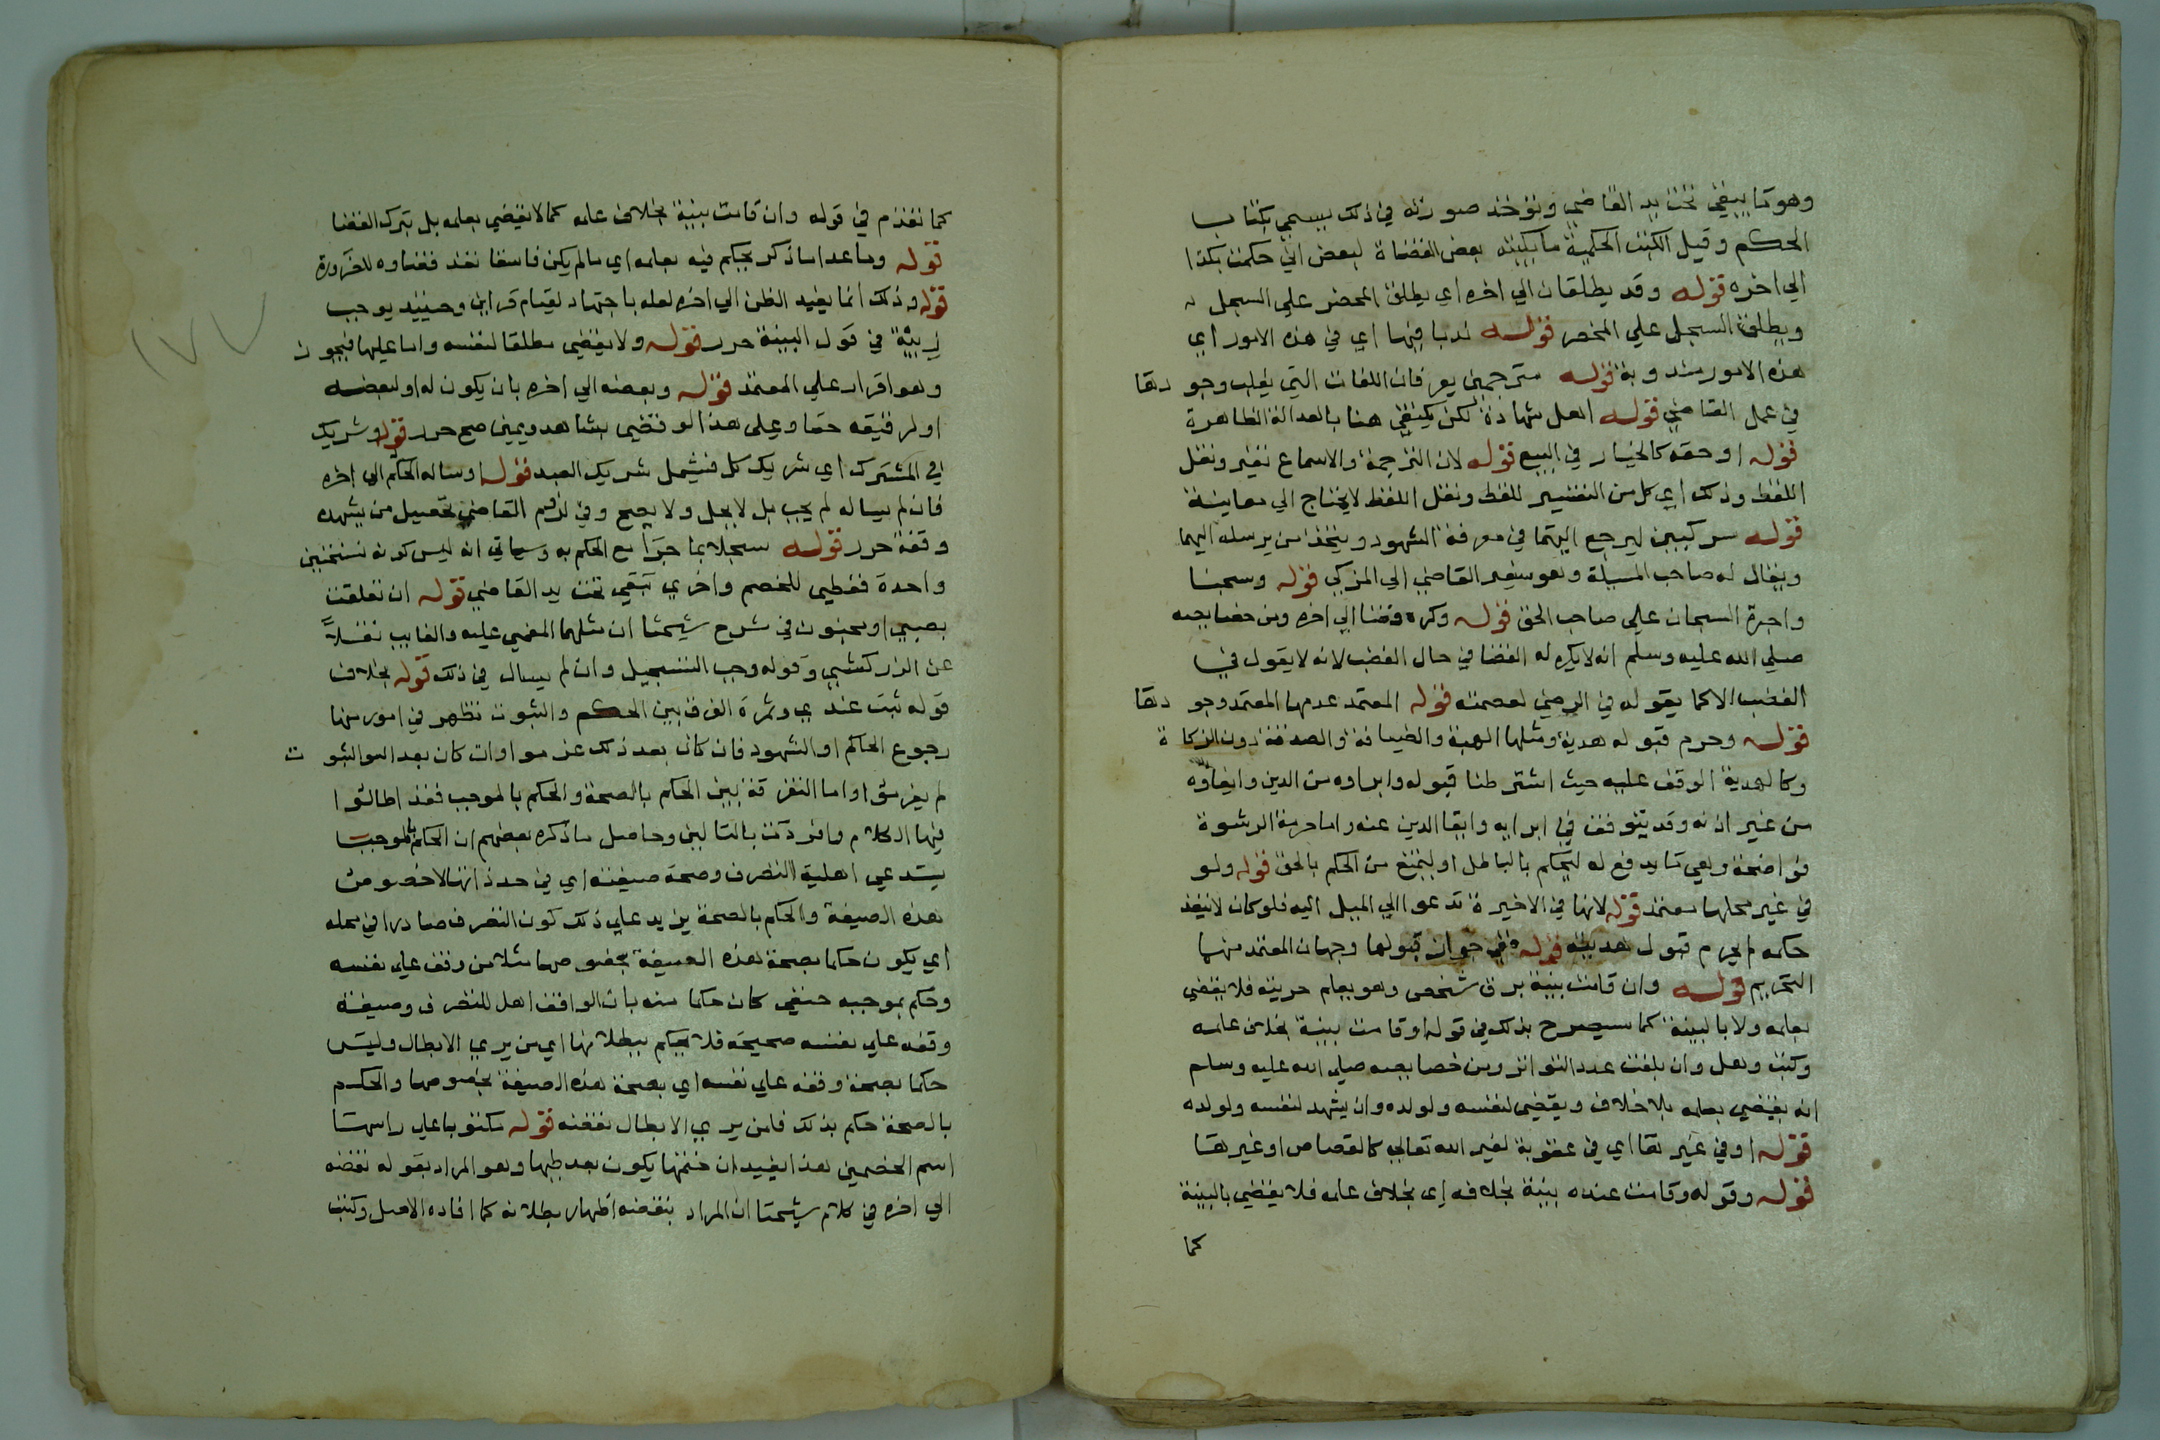 وهو ما يبقي تحت يد القاضي وتوخذ صورته في ذلك يسمي بكتاب
الحكم وقيل الكتب الحكمية ما يكتبه بعض القضاة لبعض اني حكمت بكذا
الي اخره قوله وقد يطلقان الي اخره اي يطلق المحضر علي السجل
ويطلق السجل علي المحضر قوله ندبا فيها اي في هذه الامور اي
هذه الامور مندوبة قوله مترجمين يعرفان اللغات التي يغلب وجودها
في عمل القاضي قوله اهل شهادة لكن يكتفي هنا بالعدالة الظاهرة
قوله او حقه كالخيار في البيع قوله لان الترجمة والاسماع تفسير ونقل
اللفظ وذلك اي كل من التفسير للفظ ونقل اللفظ لا يحتاج الي معاينة
قوله مزكيين ليرجع اليهما في معرفة الشهود ويتخذ من يرسله اليهما
ويقال له صاحب المسيلة وهو سفير القاضي الي المزكي قوله وسجنا
واجرة السجان علي صاحب الحق قوله وكره قضا الي اخره ومن خصايصه
صلي الله عليه وسلم انه لا يكره له القضا في حال الغضب لانه لا يقول في
الغضب الا كما يقوله في الرضي لعصمته قوله المعتمد عدمها المعتمد وجودها
قوله وحرم قبوله هدية ومثلها الهبة والضيافة والصدقة دون الزكاة
وكالهدية الوقف عليه حيث اشترطنا قبوله وابراوه من الدين وايفاوه
من غير اذنه وقد يتوقف في ابرايه وايفا الدين عنه واما حرمة الرشوة
فواضحة وهي ما يدفع له ليحكم بالباطل او ليمتنع من الحكم بالحق قوله ولو
في غير محلها معتمد قوله لانها في الاخيرة تدعوا الي الميل اليه فلو كان لا ينفذ
حكمه لم يحرم قبول هديته قوله ففي جواز قبولها وجهان المعتمد منهما
التحريم قوله وان قامت بينة برق شخص وهو يعلم حريته فلا يقضي
بعلمه ولا بالبينة كما سيصرح بذلك في قوله او قامت بينة بخلاف علمه
وكتب وهل وان بلغت عدد التواتر ومن خصايصه صلي الله عليه وسلم
انه يقضي بعلمه بلا خلاف ويقضي لنفسه ولولده وان يشهد لنفسه ولولده
قوله او في غيرها اي في عقوبة لغير الله تعالي كالقصاص او غيرها
قوله وقوله وقامت عنده بينة بخلافه اي بخلاف علمه فلا يقضي بالبينة
كما
كما تقدم في قوله وان قامت بينة بخلاف علمه كما لا يقضي بعلمه بل يترك القضا
قوله وما عدا ما ذكر يحكم فيه بعلمه اي ما لم يكن فاسقا نفذ قضاوه للضرورة
قوله وذلك انما يفيد الظن الي اخره لعله باجتهاد لقيام قراين وحينيذ يوجب
ريبة في قول البينة حرر قوله ولا يقضي مطلقا لنفسه واما عليها فيجوز
وهو اقرار علي المعتمد قوله وبعضه الي اخره بان يكون له او لبعضه
او لرقيقه حقا وعلي هذا لو قضي بشاهد ويمين صح حرر قوله وشريك
في المشترك اي شريك كل فيشمل شريك العبد قوله او ساله الحكم الي اخره
فان لم يساله لم يجب بل لا يحل ولا يصح وفي لزوم القاضي تحصيل من يشهده
وقفة حرر قوله سجلا بما جرا مع الحكم به وسياتي انه ليس كونه نسختين
واحدة تعطي للخصم واخري تبقي تحت يد القاضي قوله ان تعلقت
بصبي او مجنون في شرح شيخنا ان مثلهما المقضي عليه والغايب نقلا
عن الزركشي وقوله وجب التسجيل وان لم يسال في ذلك قوله بخلاف
قوله ثبت عندي وثمرة الفرق بين الحكم والثبوت تظهر في امور منها
رجوع الحاكم او الشهود فان كان بعد ذلك غرموا وان كان بعد الثبوت
لم يغرموا واما التفرقة بين الحكم بالصحة والحكم بالموجب فقد اطالوا
فيها الكلام وافردت بالتاليف وحاصل ما ذكره بعضهم ان الحكم بالموجب
يستدعي اهلية التصرف وصحة صيغته اي في حد ذاتها لا خصوص
هذه الصيغة والحكم بالصحة يزيد علي ذلك كون التصرف صادرا في محله
اي يكون حكما بصحة هذه الصيغة بخصوصها مثلا من وقف علي نفسه
وحكم بموجبه حنفي كان حكما منه بان الواقف اهل للتصرف وصيغة
وقفه علي نفسه صحيحة فلا يحكم ببطلانها اي من يري الابطال وليس
حكما بصحة وقفه علي نفسه اي بصحة هذه الصيغة بخصوصها والحكم
بالصحة حكم بذلك فامن يري الابطال نقضه قوله مكتوبا علي راسهما
اسم الخصمين هذا يفيد ان ختمها يكون بعد طيها وهو المراد بقوله نقضه
الي اخره في كلام شيخنا ان المراد بنقضه اظهار بطلانه كما افاده الاصل وكتب
١٧٧